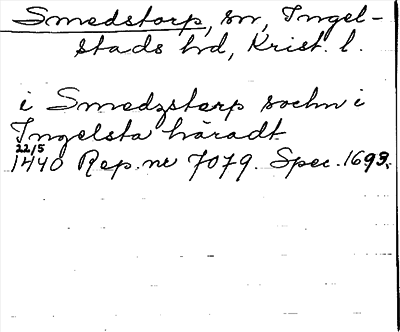 Smedstorp, sn, Ingel-
stads hd, Krist. l.
i Smedzstorp sochn i
Ingelsta häradt
22/5
1440 Rep. nr 7079. Spec. 1693.